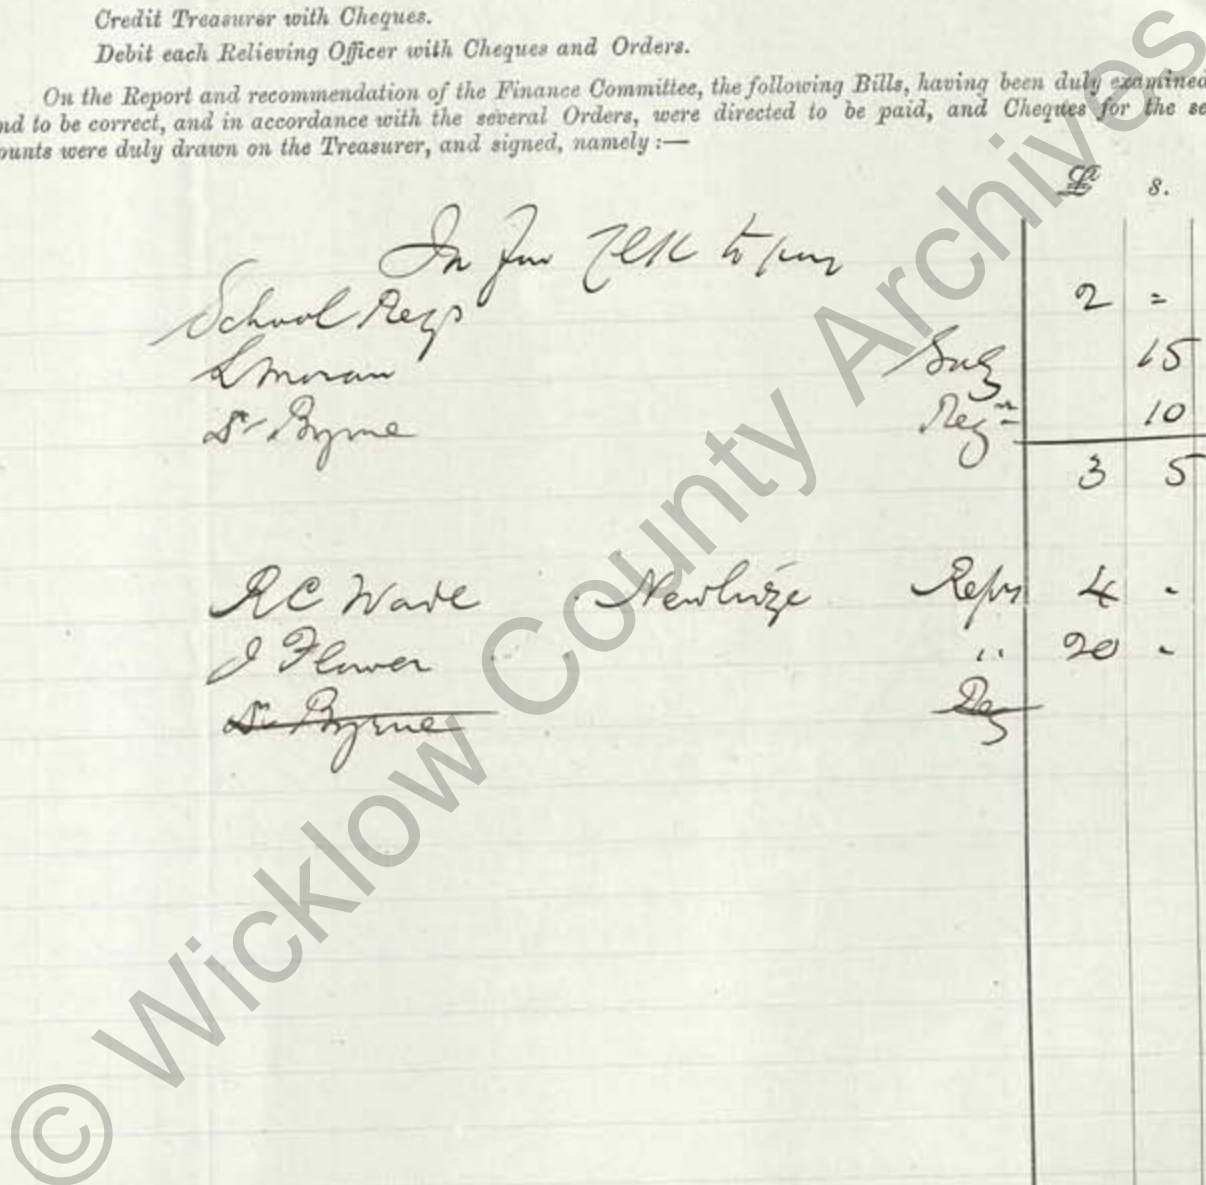 Credit Treasurer with Cheques.
Debit each Relieving Officer with Cheques and Orders.
On the Report and recommendation of the Finance Committee, the following Bills, having been duly examined
nd to be correct, and in accordance with the several Orders, were directed to be paid, and Cheques for the se
ounts were duly drawn on the Treasurer, and signed, namely:—
£ s.
In to pay
School Regs 2 =
L Moran 15
Dr Byrne Regn 10
3 5
R C Wade Reprs 4 -
J Flower " 20 -
Dr Byrne Reg
© Wicklow County Archives